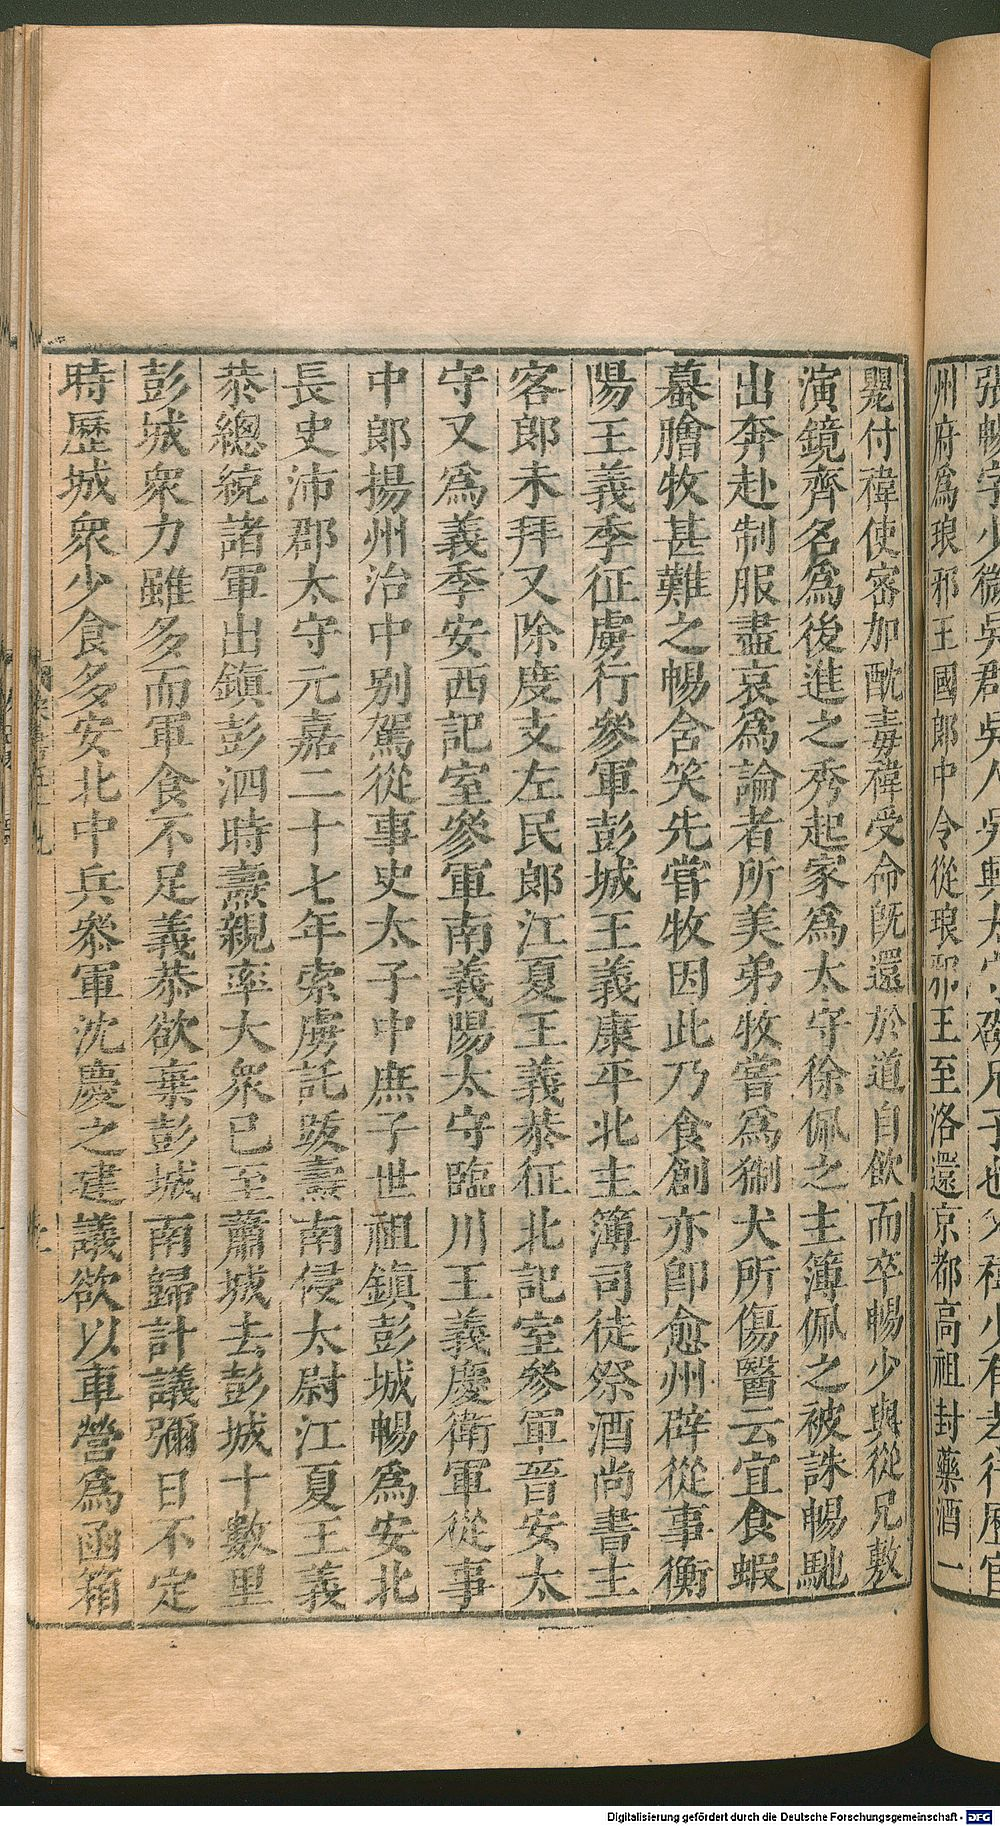 州府爲琅邪王國郎中令從琅邪王至洛還京都高祖封藥酒一
甖付禕使密加酖毒禕受命旣還於道自飮而卒暢少與從兄敷
演鏡齊名爲後進之秀起家爲太守徐佩之主簿佩之被誅暢馳
出奔赴制服盡哀爲論者所美弟牧嘗爲猘犬所傷醫云宜食蝦
蟇膾牧甚難之暢含笑先嘗牧因此乃食創亦卽愈州辟從事衡
陽王義季征虜行參軍彭城王義康平北主簿司徒祭酒尚書主
客郎未拜又除度支左民郎江夏王義恭征北記室參軍晉安太
守又爲義季安西記室參軍南義陽太守臨川王義慶衛軍從事
中郎揚州治中別駕從事史太子中庶子世祖鎮彭城暢爲安北
長史沛郡太守元嘉二十七年索虜託跋燾南侵太尉江夏王義
恭總統諸軍出鎮彭泗時燾親率大衆已至蕭城去彭城十數里
彭城衆力雖多而軍食不足義恭欲棄彭城南歸計議彌日不定
時歷城衆少食多安北中兵參軍沈慶之建議欲以車營爲函箱
Digitalisierung gefördert durch die Deutsche Forschungsgemeinschaft - DFG